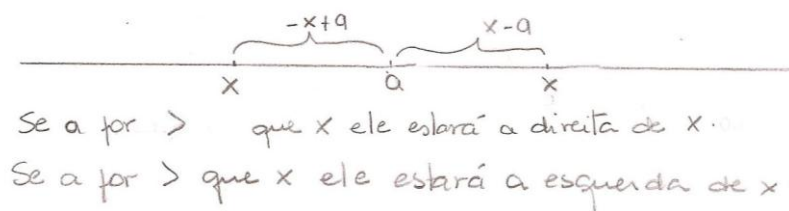 -x+a x-a
x a x
Se a for > que x ele estará a direita de x.
Se a for > que x ele estará a esquerda de x